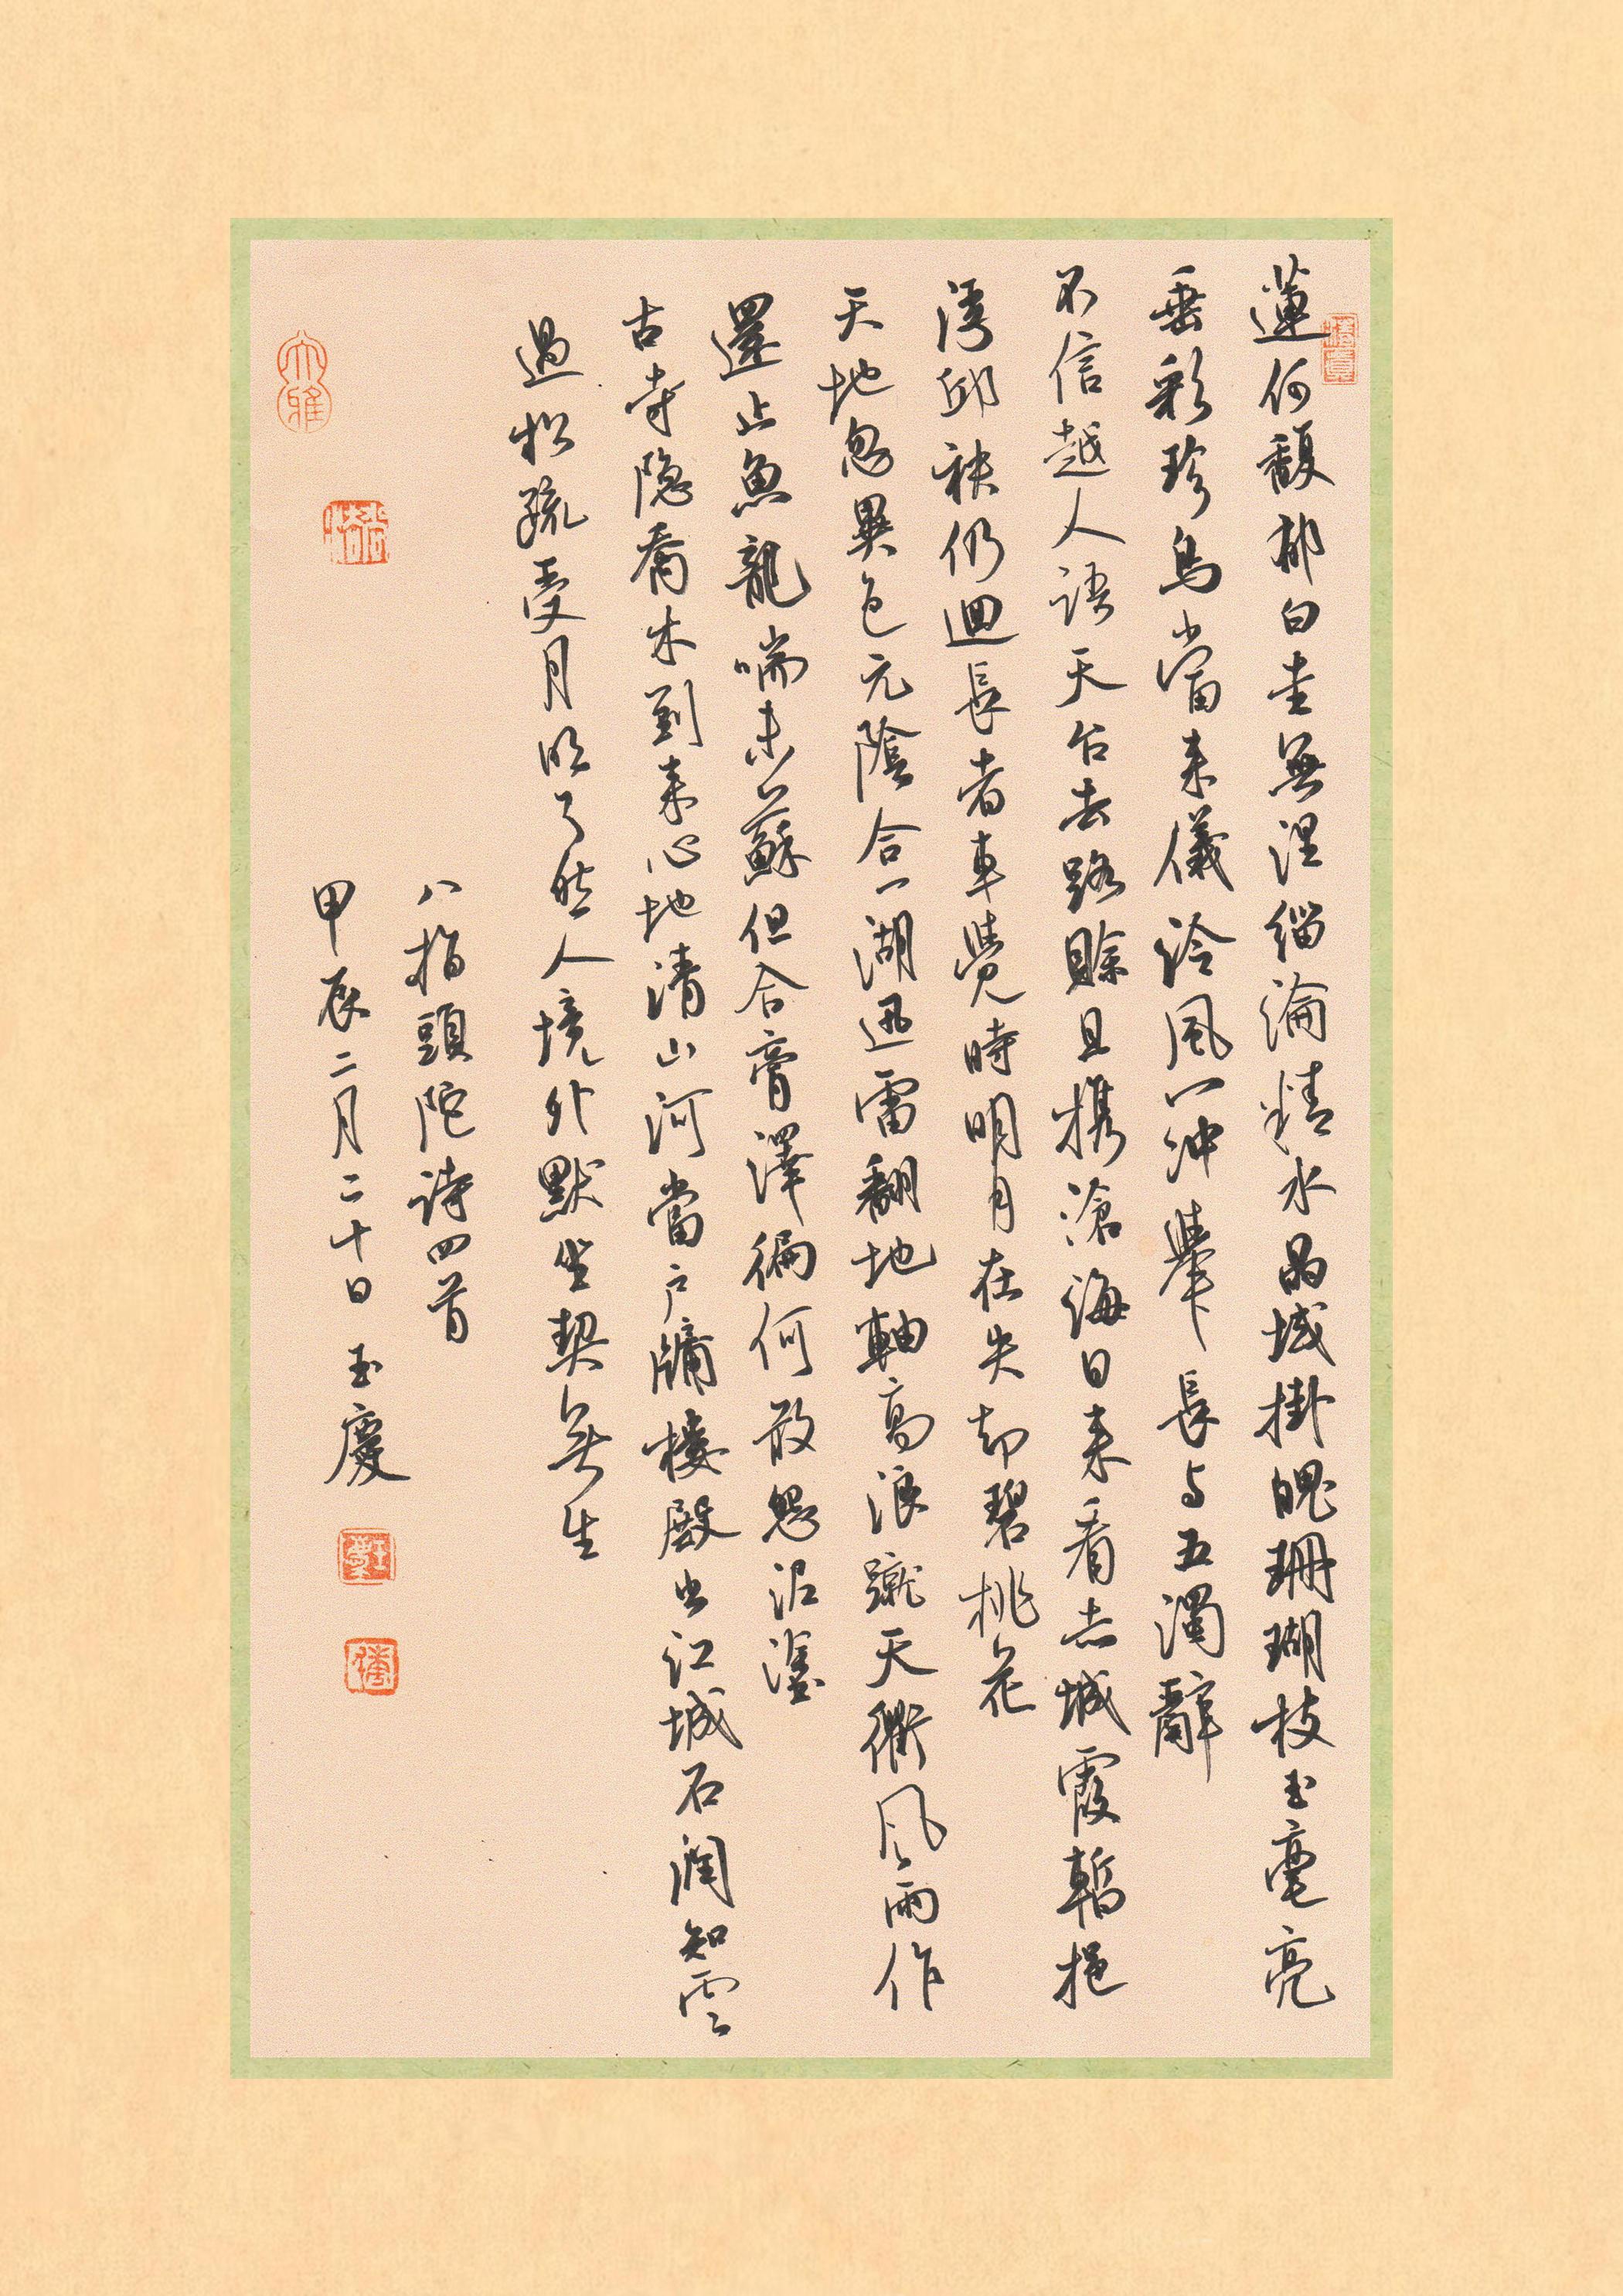 蓮何馥郁白圭無涅緇淪精水晶域掛魄珊瑚枝玉毫亮
垂彩珍鳥當来儀泠風一沖舉長与五濁辭
不信越人語天台去路賒且携滄海日来看赤城霞暫挹
浮邱袂仍迴長者車覺時明月在失却碧桃花
天地忽異色元陰合一湖迅雷翻地軸高浪蹴天衢風雨作
還止魚龍喘未蘇但合膏澤徧何敢怨泥塗
古寺隐喬木到来心地清山河當户牖樓殿出江城石潤知雲
過松疏受月明了然人境外默坐契無生
八指頭陀詩四首
甲辰二月二十日玉慶
大雅